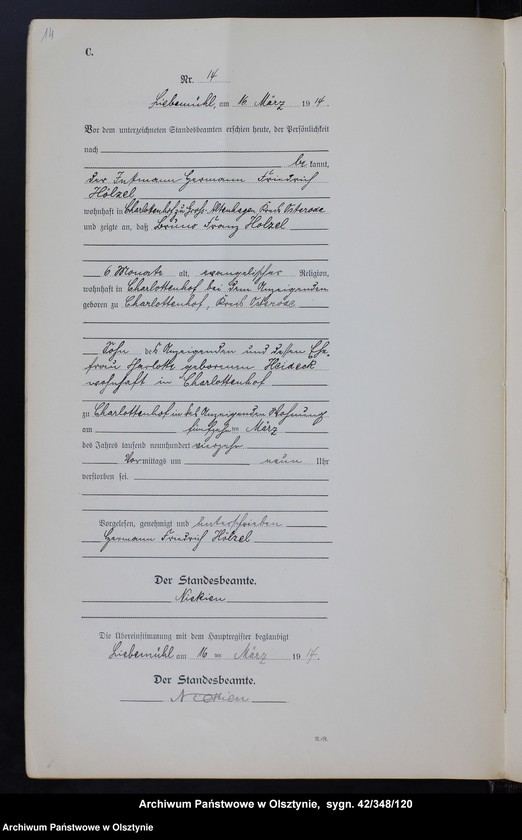 14
C.
Nr. 14
Liebemühl, am 16 März 1914.
Vor dem unterzeichneten Standesbeamten erschien heute, der Persönlichkeit
nach
be kannt,
der Instmann Hermann Friedrich
Hölzel
wohnhaft in Charlottenhof zu Groß Altenhagen Kreis Osterode
und zeigte an, daß Bruno Franz Hölzel
6 Monate alt, evangelischer Religion,
wohnhaft in Charlottenhof bei dem Anzeigenden
geboren zu Charlottenhof, Kreis Osterode
Sohn des Anzeigenden und dessen Ehe,
frau Charlotte geborenen Heideck
wohnhaft in Charlottenhof
zu Charlottenhof in des Anzeigenden Wohnung
am fünfzehnten März
des Jahres tausend neunhundert vierzehn
Vormittags um neun Uhr
verstorben sei.
Vorgelesen, genehmigt und unterschrieben
Hermann Friedrich Hölzel
Der Standesbeamte.
Die Übereinstimmung mit dem Hauptregister beglaubigt
Liebemühl am 16 ten März 1914.
Der Standesbeamte.
Archiwum Państwowe w Olsztynie, sygn. 42/348/120
Archiwum Państwowe w Olsztynie